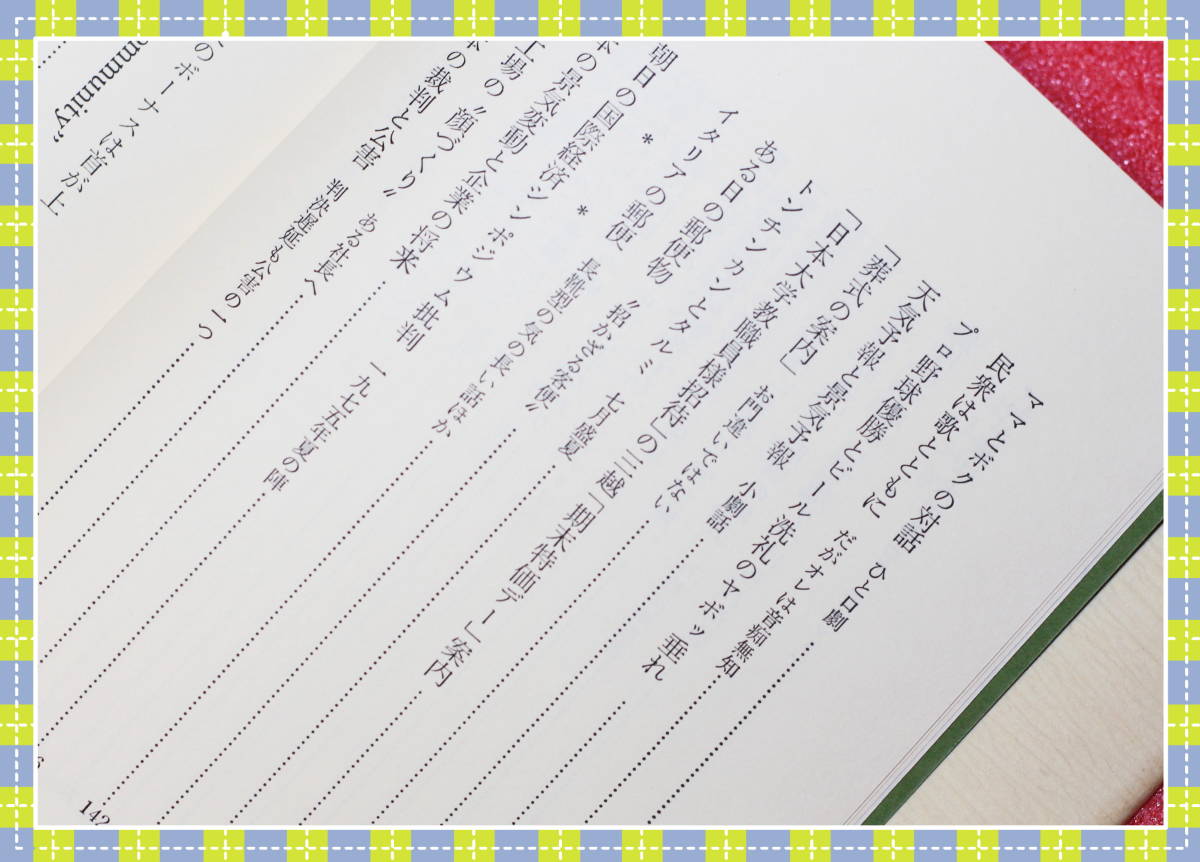 ママとボクの対話　ひと口劇
民衆は歌とともに　だがオレは音痴無知
プロ野球優勝とビール洗礼のヤボッ垂れ
天気予報と景気予報　小劇話
「葬式の案内」　お門違いではない
「日本大学教職員様招待」の三越「期末特価デー」案内
トンチンカンとタルミ　七月盛夏
ある日の郵便物　〝招かざる客便〟
イタリアの郵便　長靴型の気の長い話ほか
＊　＊
朝日の国際経済シンポジウム批判　一九七五年夏の陣
の景気変動と企業の将来
工場の〝顔づくり〟　ある社長へ
の裁判と公害　判決遅延も公害の一つ
142
のボーナスは首が上
ommunity”